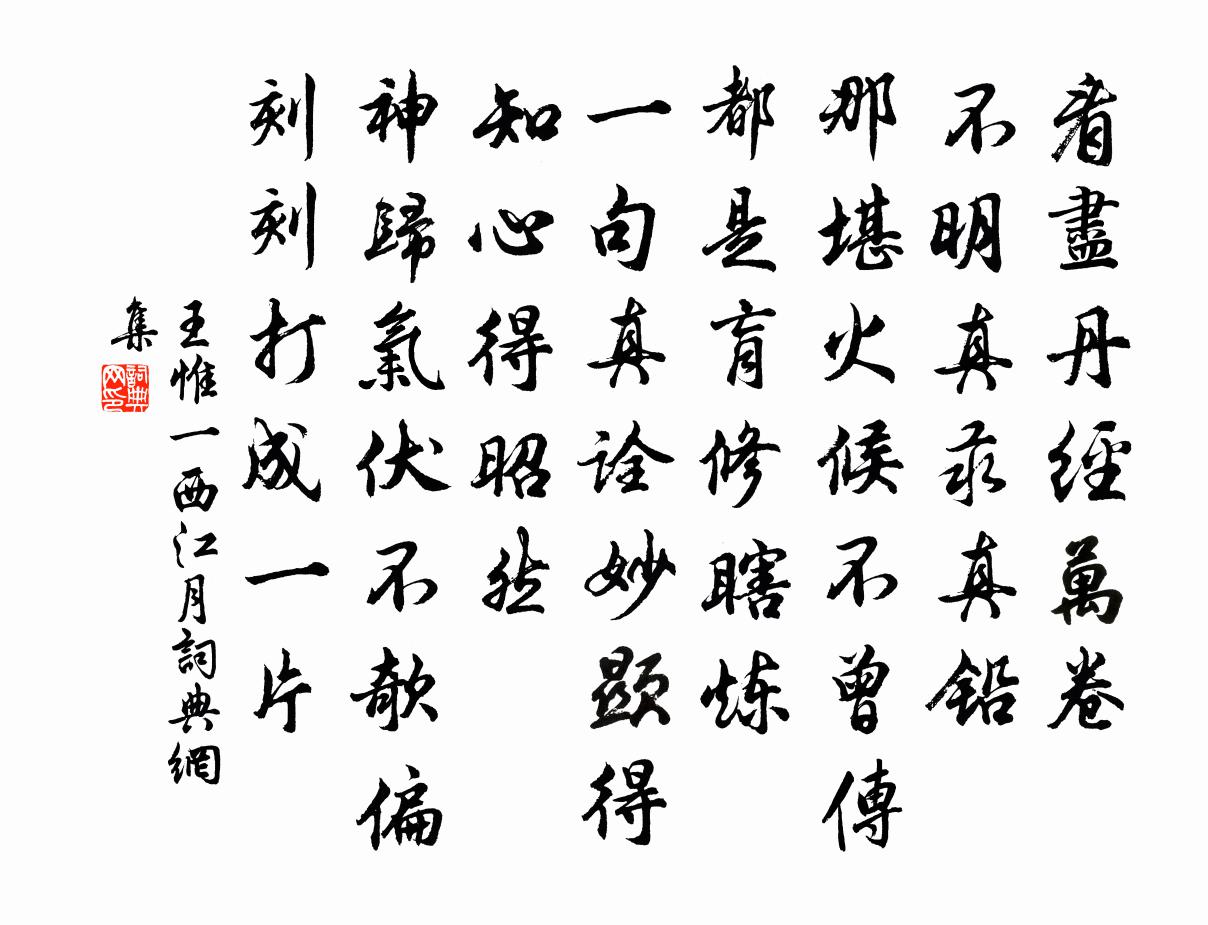 看盡丹經萬卷
不明真汞真鉛
那堪火候不曾傳
都是盲修瞎炼
一句真詮妙顯得
知心得昭然
神歸氣伏不欹偏
刻刻打成一片
王惟一西江月詞典網
集
詞典网印